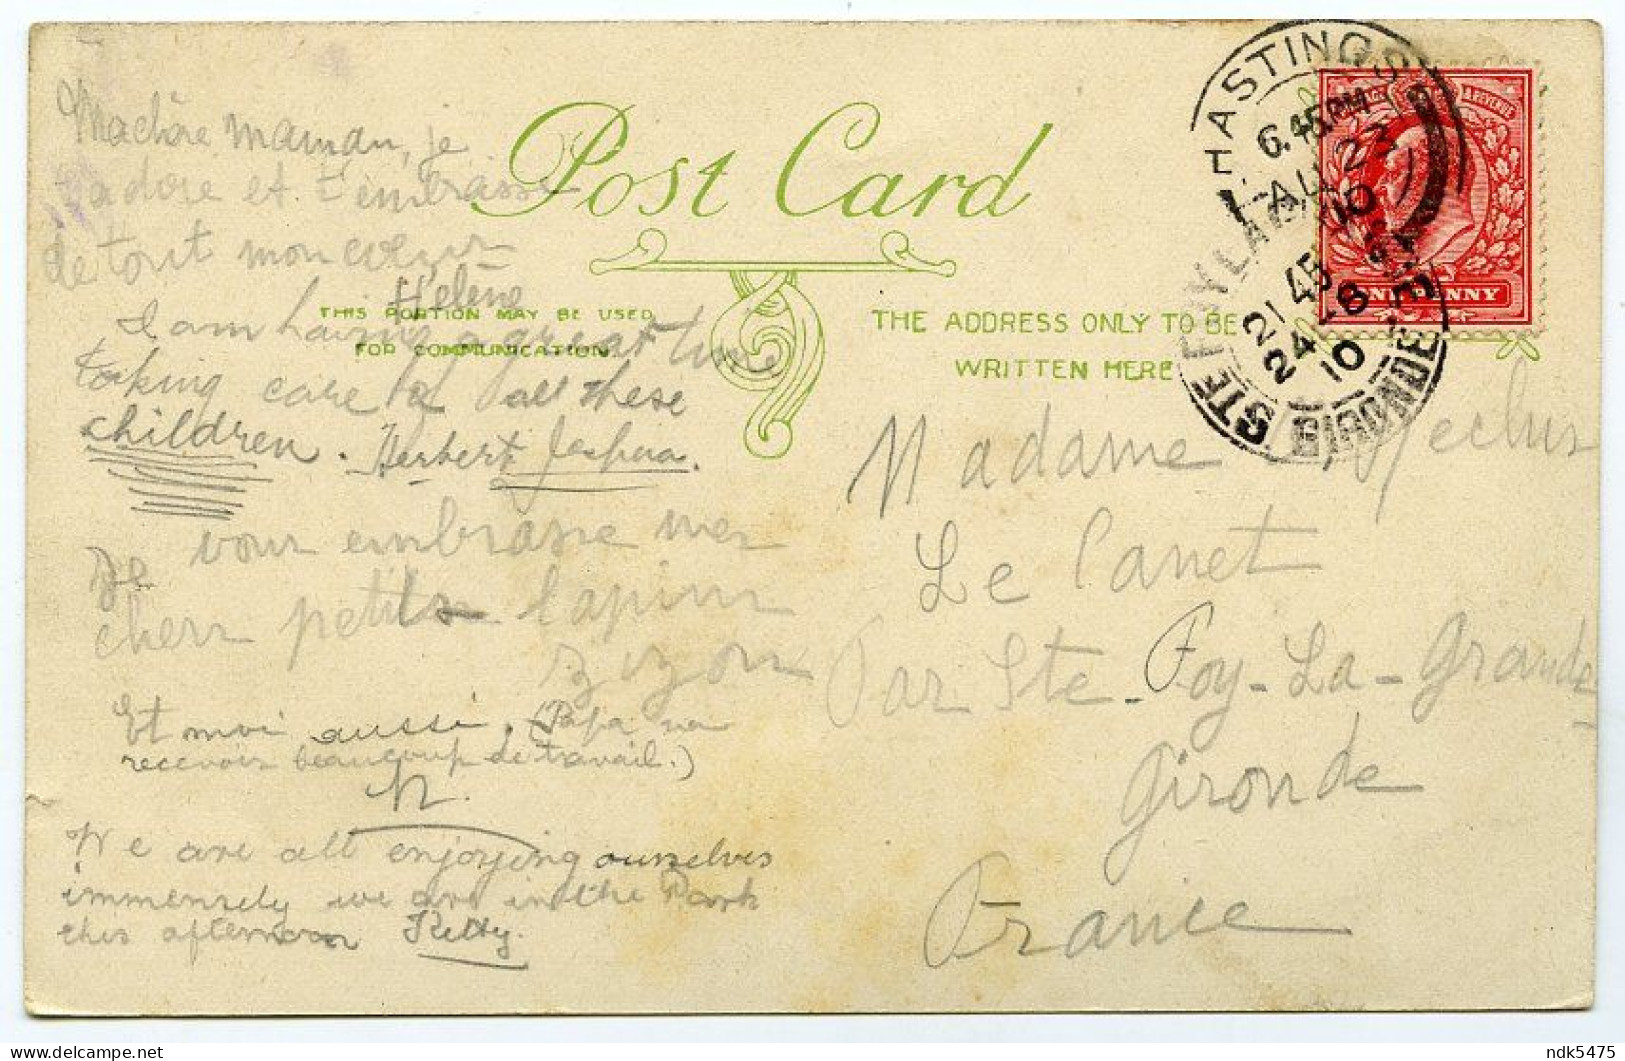 Post Card
THIS PORTION MAY BE USED
FOR COMMUNICATION.
THE ADDRESS ONLY TO BE
WRITTEN HERE
HASTINGS
6.45PM
AU 23
10
STE FOY LA GRANDE
21 45
24 -8
10
GIRONDE
POSTAGE & REVENUE
ONE PENNY
Machère maman, je
t'adore et t'embrasse
de tout mon coeur
Helène
I am having a great time
taking care of all these
children. Herbert
Je vous embrasse mes
chers petits lapins
zizon
Et moi aussi. (Papa va
recevoir beaucoup de travail.)
N.
We are all enjoying ourselves
immensely we are in the Park
this afternoon Kitty.
Madame Reclus
Le Canet
Par Ste-Foy-La-Grande
Gironde
France
ndk5475